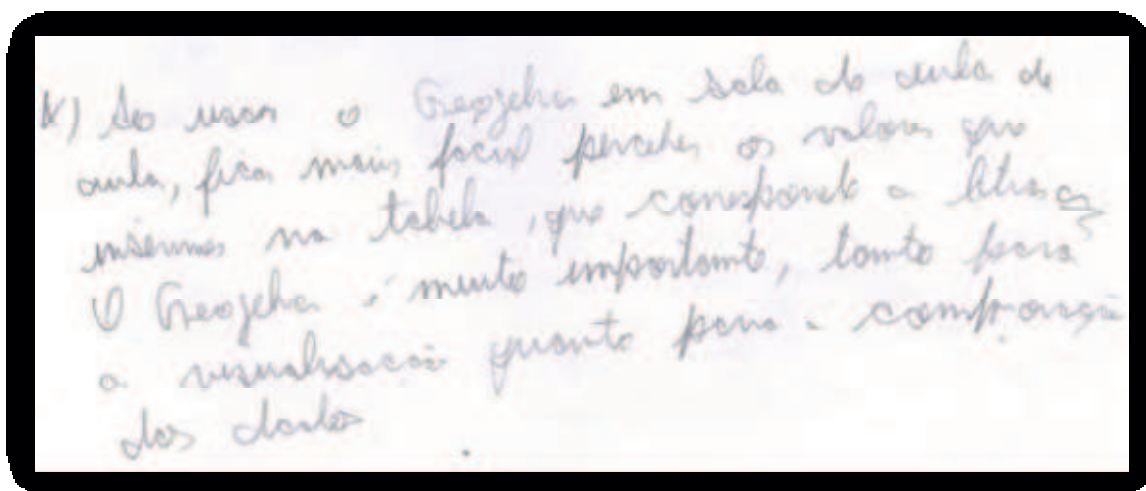 K) Ao usar o Geogebra em sala de aula de
aula, fica mais facil perceber os valores que
inserimos na tabela, que corresponde a letra
O Geogebra é muito importante, tanto para
a visualisacão quanto para a comparação
dos dados.